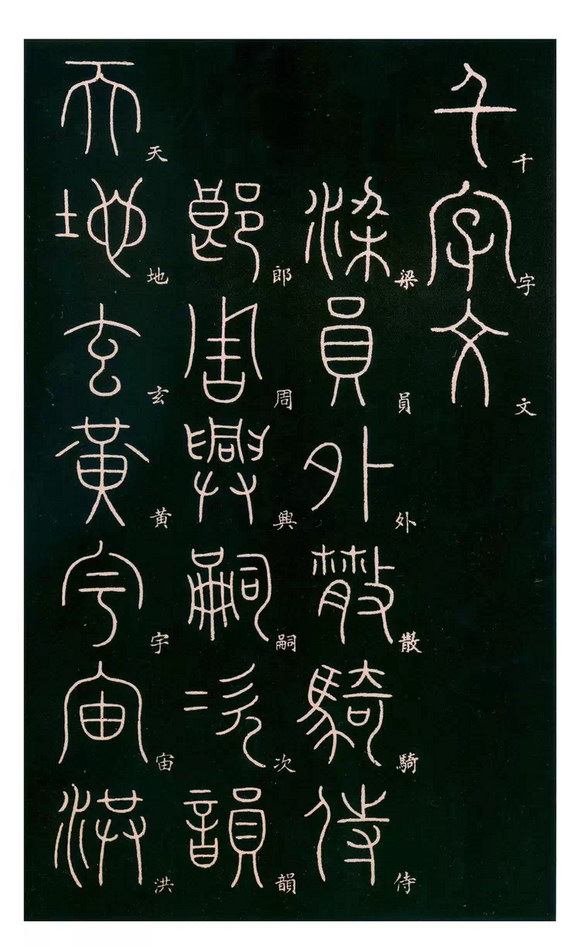 千字文
梁員外散騎侍
郎周興嗣次韻
天地玄黃宇宙洪